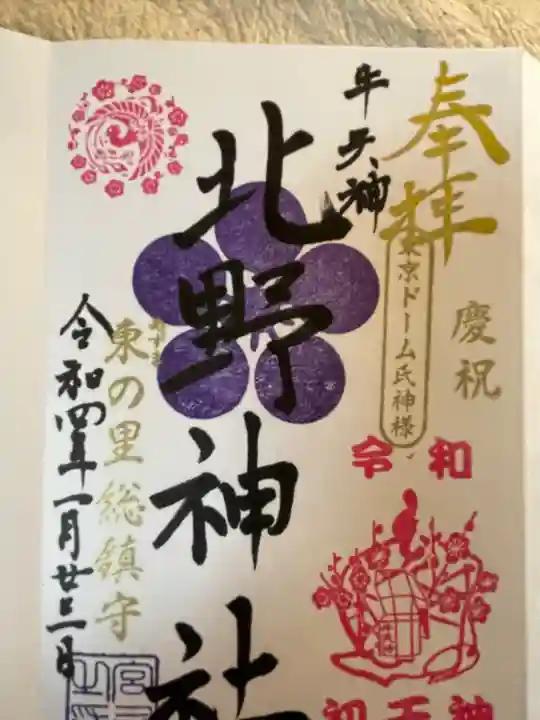 奉拝
慶祝
東京ドーム氏神様
令和
初天神
牛天神
北野神社
東の里総鎮守
令和四年一月廿三日